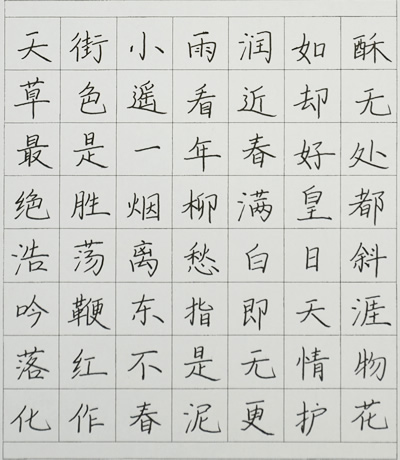 天街小雨润如酥
草色遥看近却无
最是一年春好处
绝胜烟柳满皇都
浩荡离愁白日斜
吟鞭东指即天涯
落红不是无情物
化作春泥更护花